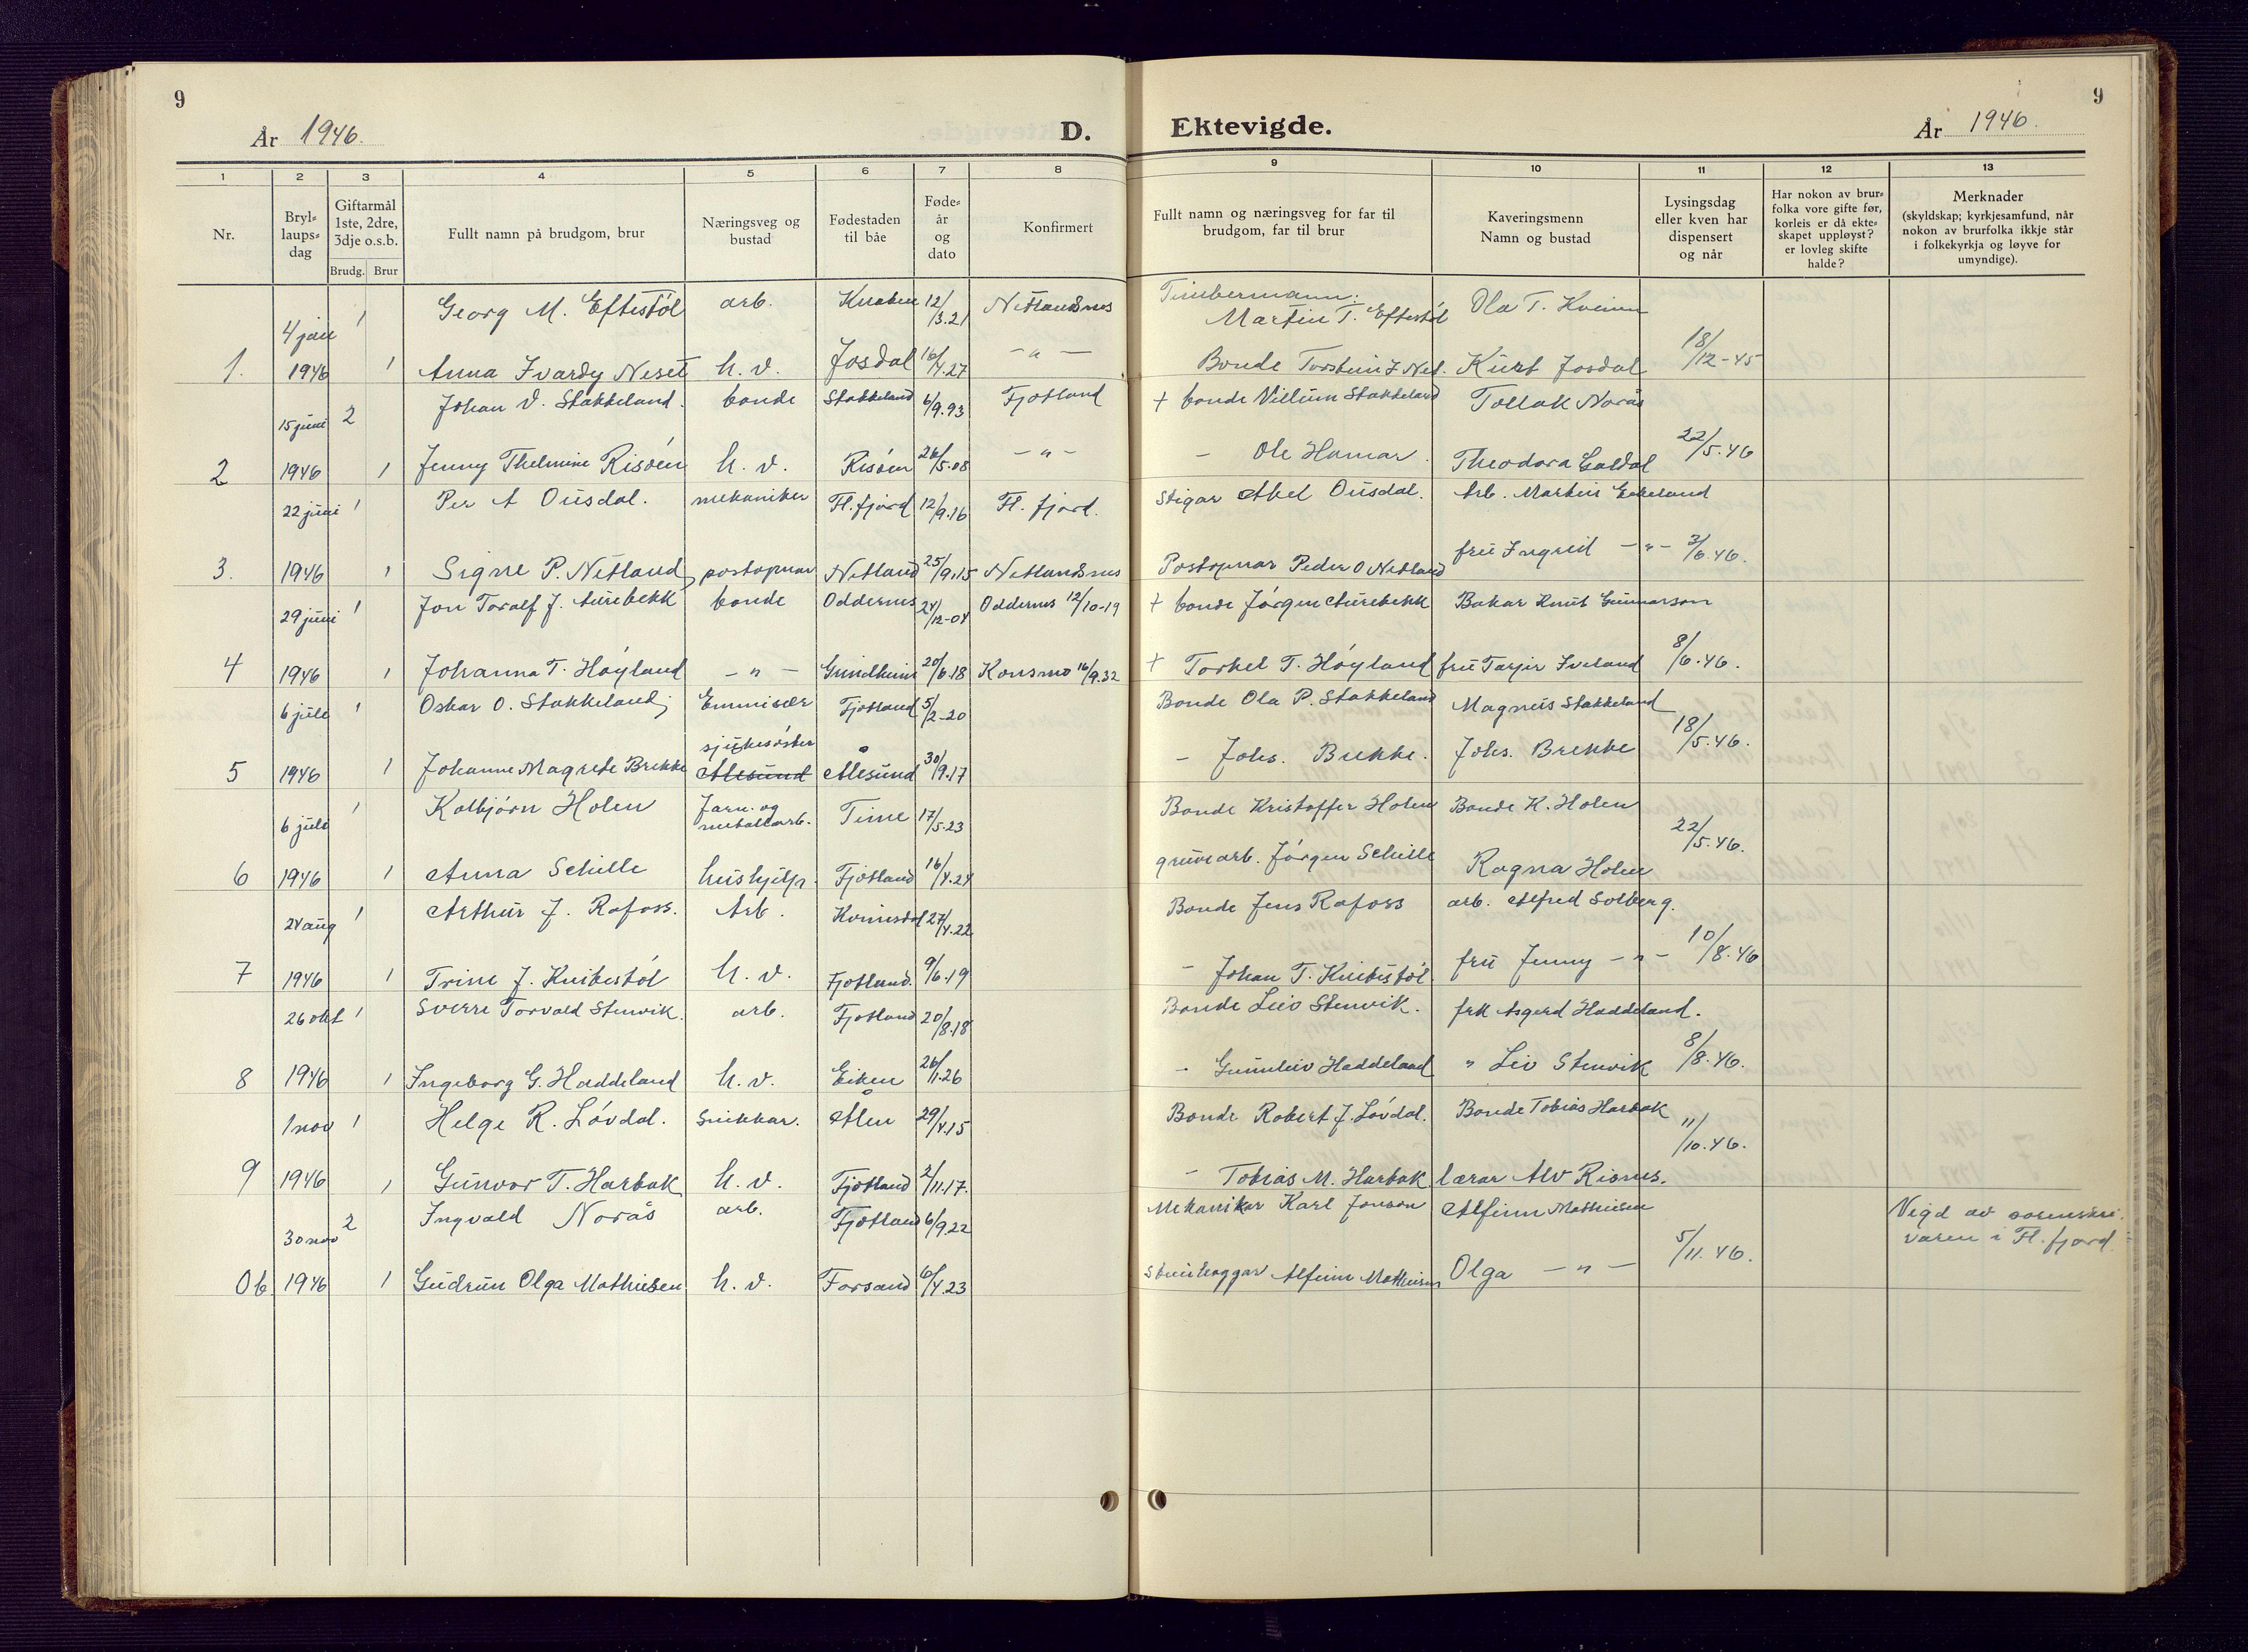 9
9
År 1946.
D.
Ektevigde.
År 1946.
1 2 3 4 5 6 7 8 9 10 11 12 13
Nr.
Bryl-
laups-
dag
Giftarmål
1ste, 2dre,
3dje o.s.b.
Brudg. Brur
Fullt namn på brudgom, brur
Næringsveg og
bustad
Fødestaden
til båe
Føde-
år
og
dato
Konfirmert
Fullt namn og næringsveg for far til
brudgom, far til brur
Kaveringsmenn
Namn og bustad
Lysingsdag
eller kven har
dispensert
og når
Har nokon av brur-
folka vore gifte før,
korleis er då ekte-
skapet uppløyst?
er lovleg skifte
halde?
Merknader
(skyldskap; kyrkjesamfund, når
nokon av brurfolka ikkje står
i folkekyrkja og løyve for
umyndige).
4 jan 1 Georg M. Eftestöl arb. Knaben 12/3.21 Netlandsnes Timbermann: Martin T. Eftestöl Ola T. Kveinn
1. 1946 1 Anna Ivardy Neset h. v. Josdal 16/4.27 – " – Bonde Torstein I Net. Kurt Josdal 18/12-45
15 juni 2 Johan V. Stakkeland. bonde Stakkeland 6/9.93 Fjotland + bonde Villum Stakkeland Tollak Norås
2 1946 1 Jenny Thelmine Risöen h. v. Risöen 26/5.08 – " – – Ole Hamar. Theodora Galdal 22/5.46
22 juni 1 Per A Ousdal. mekaniker Fl.fjord 12/9.16 Fl. fjord. Stigar Abel Ousdal. Arb. Martin Eikeland
3. 1946 1 Signe P. Netland, postopnar Netland 25/9.15 Netlandsnes Postopnar Peder O Netland fru Ingrid – " – 3/6.46.
29 juni 1 Jon Toralf J. Aurebekk bonde Oddernes 24/12-04 Oddernes 12/10-19 + bonde Jörgen Aurebekk Bakar Knut Gunnarson
4 1946 1 Johanna T. Höyland – " – Grindheim 20/6.18 Konsmo 16/9.32 + Torkel T. Höyland fru Tarjer Iveland 8/6.46.
6 jule 1 Oskar O. Stakkeland, Emmisær Fjotland 5/2-20 Bonde Ola P. Stakkeland Magnus Stakkeland
5 1946 1 Johanne Magrete Brekke sjukesöster Ålesund Ålesund 30/9.17 – Johs. Brekke. Johs. Brekke 18/5.46.
6 jule 1 Kolbjörn Holen Jarn- og metallarb. Time 17/5.23 Bonde Kristoffer Holen Bonde K. Holen
6 1946 1 Anna Schille hushjelp. Fjotland 16/4.24 gruvearb. Jörgen Schille Ragna Holen 22/5.46.
24 aug 1 Arthur J. Rafoss. Arb. Kvinesdal 27/4.22 Bonde Jens Rafoss arb. Alfred Solberg.
7 1946 1 Trine J. Knibestöl h. v. Fjotland. 9/6.19 – Johan T. Knibestöl. fru Jenny – " – 10/8.46
26 okt 1 Sverre Torvald Stenvik. arb. Fjotland 20/8.18 Bonde Leiv Stenvik. frk Asgerd Haddeland.
8 1946 1 Ingeborg G. Haddeland h. v. Eiken 26/11.26 – Gunnleiv Haddeland " Liv Stenvik 8/8.46.
1 nov 1 Helge R. Lövdal. Snikkar. Ålen 29/4.15 Bonde Robert J. Lövdal. Bonde Tobias Harbak
9 1946 1 Gunvor T. Harbak h. v. Fjotland 2/11.17. – Tobias M. Harbak lærar Alv Risnes. 11/10.46.
30 nov 2 Ingvald Norås arb. Fjotland 6/9.22 Mekanikar Karl Jonson Alfinn Mathiesen Vigd av sorenskri-
varen i Fl. fjord.
0b 1946 1 Gudrun Olga Mathiesen h. v. Forsand 6/4.23 Steinhoggar Alfinn Mathiesen Olga – " – 5/11.46.